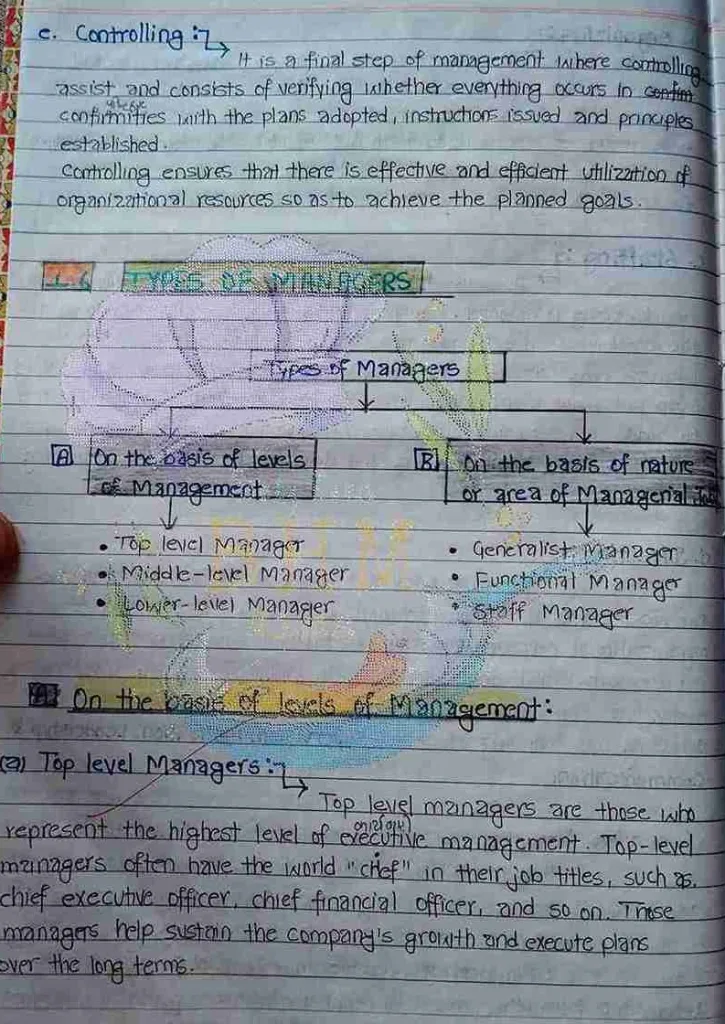 e. Controlling :
It is a final step of management where controlling
assist and consists of verifying whether everything occurs in confirm
confirmities with the plans adopted, instructions issued and principles
established.
Controlling ensures that there is effective and efficient utilization of
organizational resources so as to achieve the planned goals.
1.6 TYPES OF MANAGERS
Types of Managers
[A] On the basis of levels
of Management
[B] On the basis of nature
or area of Managerial
• Top level Manager
• Middle-level Manager
• Lower-level Manager
• Generalist Manager
• Functional Manager
• Staff Manager
BHM
[A] On the basis of levels of Management:
(a) Top level Managers :
Top level managers are those who
represent the highest level of executive management. Top-level
managers often have the world "chief" in their job titles, such as,
chief executive officer, chief financial officer, and so on. These
managers help sustain the company's growth and execute plans
over the long terms.